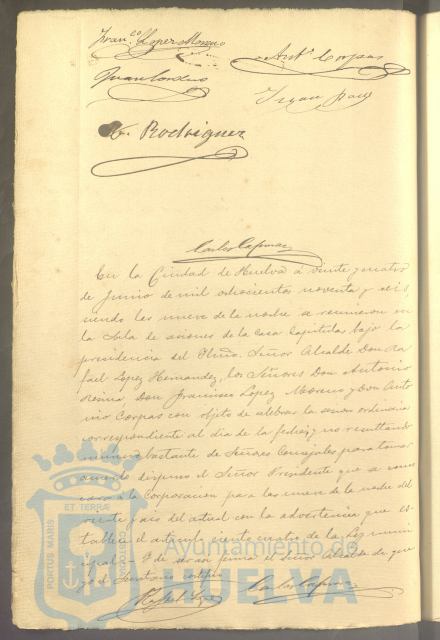 Fran.co Lopez Moreno
Ant.o Corpas
Juan
A. Rodriguez
Carlos
En la Ciudad de Huelva á veinte y cuatro
de Junio de mil ochocientos noventa y seis
siendo las nueve de la noche se reunieron en
la Sala de sesiones de la Casa Capitular bajo la
presidencia del Iltmo. Señor Alcalde Don Ra
fael Lopez Hernandez, los Señores Don Antonio
Don Francisco Lopez Moreno y Don Anto
nio Corpas con objeto de celebrar la sesion ordinaria
correspondiente al dia de la fecha; y no resultando
numero bastante de Señores Concejales para tomar
acuerdo dispuso el Señor Presidente que se convo
cara á la Corporacion para las nueve de la noche del
veinte y seis del actual con la advertencia que es
tablece el articulo ciento cuatro de la Ley muni
cipal. = Y de su orden firma el Señor Alcalde de que
yo el Secretario certifico
Rafael Lopez
Carlos
PORTUS MARIS ET TERRÆ CUSTODIA
Ayuntamiento de
HUELVA